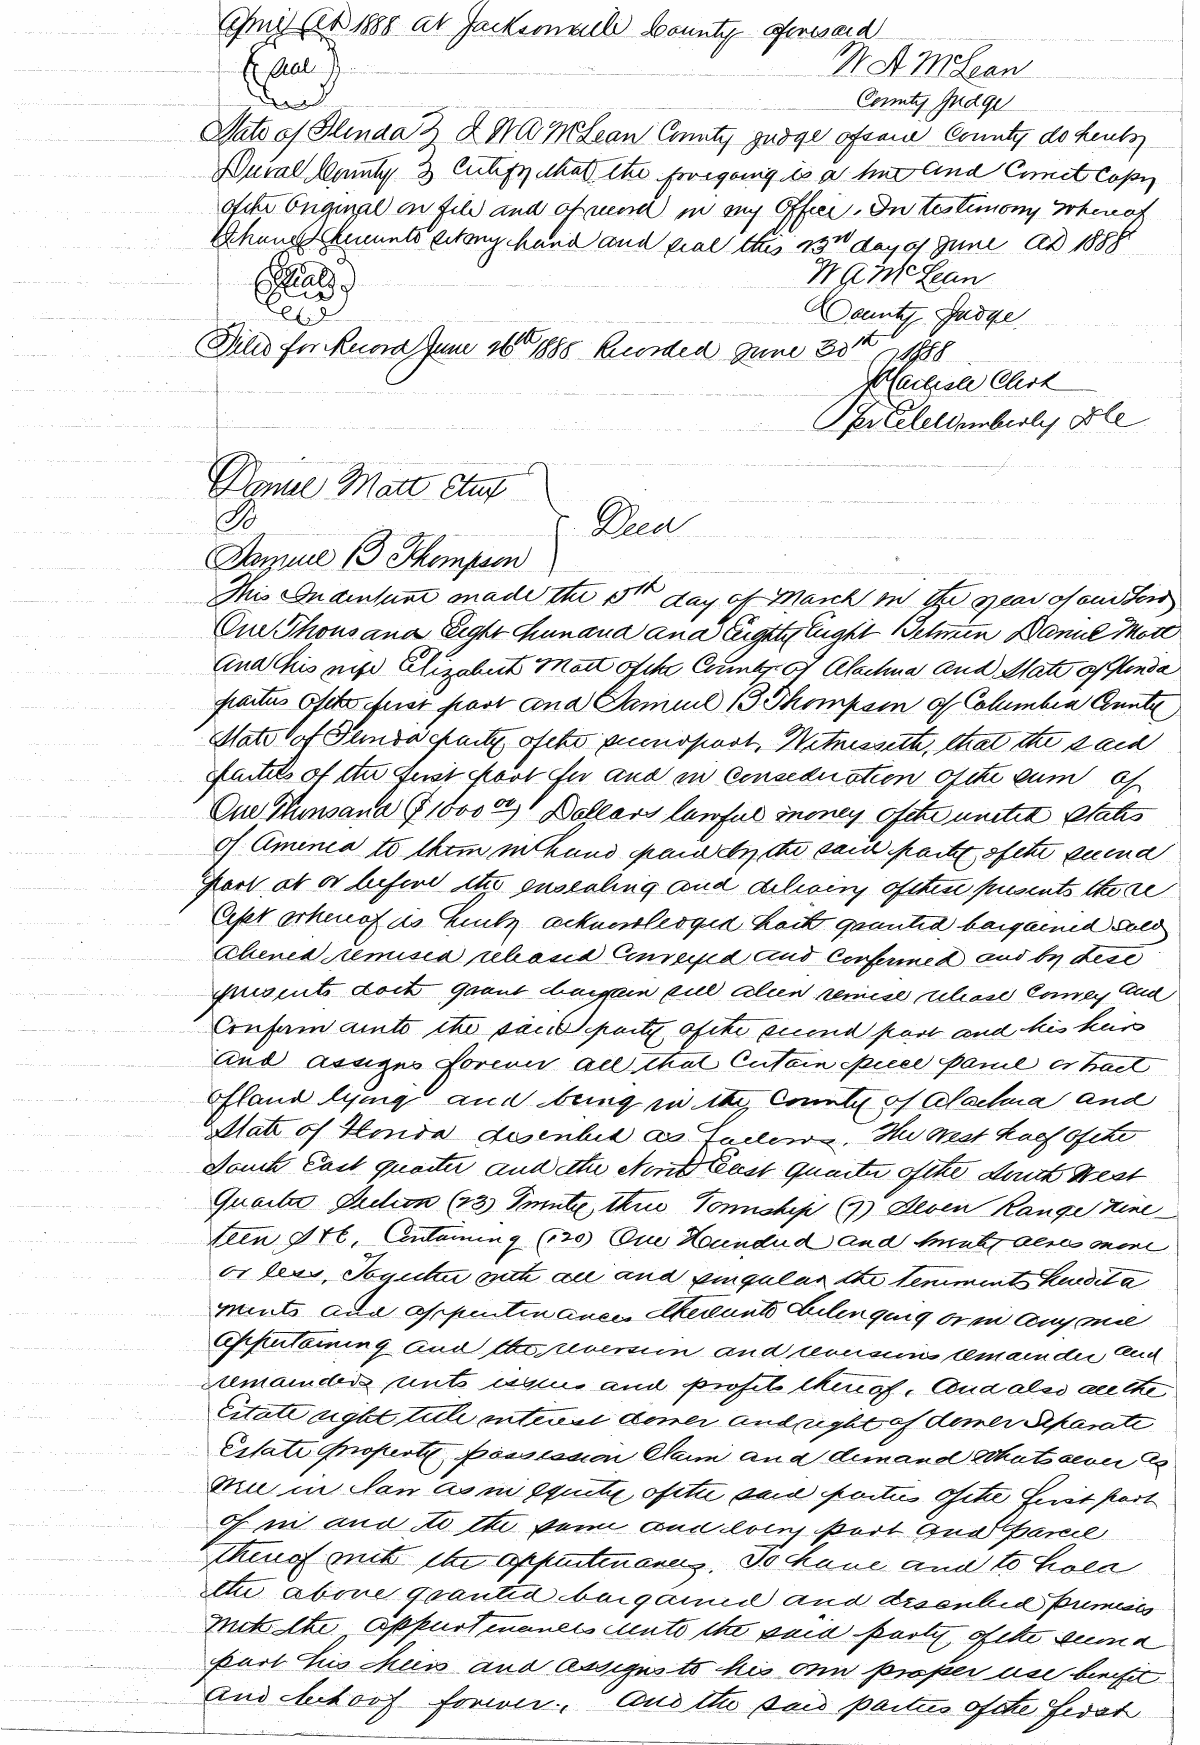 April AD 1888 at Jacksonville County aforesaid
(Seal)
W A McLean
County Judge
State of Florida } I W A McLean County Judge of said County do hereby
Duval County } Certify that the foregoing is a true and Correct Copy
of the Original on file and of record in my Office. In testimony whereof
I have hereunto set my hand and seal this 23rd day of June AD 1888
(Seal)
W A McLean
County Judge
Filed for Record June 26th 1888 Recorded June 30th 1888
Clerk
Per Wimberly DC
Daniel Mott Etux
To
Deed
Samuel B Thompson
This Indenture made the 15th day of March in the year of our Lord
One Thousand Eight hundred and Eighty Eight Between Daniel Mott
and his wife Elizabeth Mott of the County of Alachua and State of Florida
parties of the first part and Samuel B Thompson of Columbia County
State of Florida party of the second part, Witnesseth, that the said
parties of the first part for and in consideration of the sum of
One Thousand ($1000 00) Dollars lawful money of the united States
of America to them in hand paid by the said party of the second
part at or before the ensealing and delivery of these presents the re
ceipt whereof is hereby acknowledged hath granted bargained sold
aliened remised released Conveyed and Confirmed and by these
presents doth grant bargain sell alien remise release Convey and
Confirm unto the said party of the second part and his heirs
and assigns forever all that Certain piece parcel or tract
of land lying and being in the County of Alachua and
State of Florida described as follows. The West half of the
South East quarter and the North East quarter of the South West
quarter Section (23) Twenty three Township (7) Seven Range Nine-
teen S & E, Containing (120) One Hundred and twenty acres more
or less, Together with all and singular the tenements heredita
ments and appurtenances thereunto belonging or in any wise
appertaining and the reversion and reversions remainder and
remainders rents issues and profits thereof, And also all the
Estate right title interest dower and right of dower Separate
Estate property possession Claim and demand whatsoever as
well in law as in equity of the said parties of the first part
of in and to the same and every part and parcel
thereof with the appurtenances, To have and to hold
the above granted bargained and described premises
with the appurtenances unto the said party of the second
part his heirs and assigns to his own proper use benefit
and behoof forever., And the said parties of the first